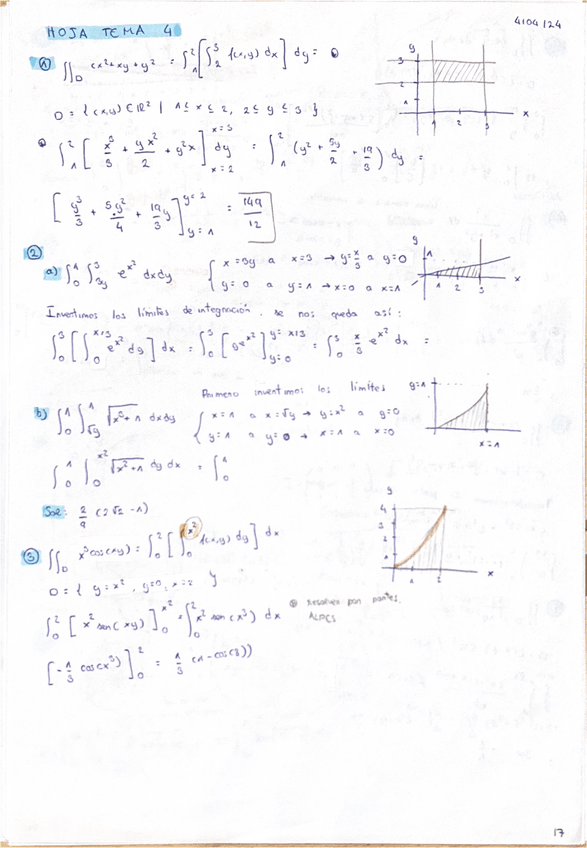 HOJA TEMA 4
4104124
① ∬_D (x²+xy+y² = ∫_1^2 [∫_2^3 f(x,y) dx] dy =
D = { (x,y) ∈ ℝ² | 1 ≤ x ≤ 2, 2 ≤ y ≤ 3 }
∫_1^2 [ x³/3 + yx²/2 + y²x ]_{x=2}^{x=3} dy = ∫_1^2 (y² + 5y/2 + 19/3) dy =
[ y³/3 + 5y²/4 + 19/3 y ]_{y=1}^{y=2} = 149/12
②
a) ∫_0^1 ∫_{3y}^3 e^{x²} dxdy { x = 3y a x = 3 → y = x/3 a y = 0
y = 0 a y = 1 → x = 0 a x = 1
Invertimos los límites de integración, se nos queda así:
∫_0^3 [∫_0^{x/3} e^{x²} dy] dx = ∫_0^3 [y e^{x²}]_{y=0}^{y=x/3} = ∫_0^3 x/3 e^{x²} dx =
Primero invertimos los límites
b) ∫_0^1 ∫_{√y}^1 √(x³+1) dxdy { x = 1 a x = √y → y = x² a y = 0
y = 1 a y = 0 → x = 1 a x = 0
y = 1
x = 1
∫_0^1 ∫_0^{x²} √(x²+1) dy dx = ∫_0^1
Sol: 2/9 (2√2 - 1)
③ ∬_D x³cos(xy) = ∫_0^2 [∫_0^{x²} f(x,y) dy] dx
D = { y = x², y = 0, x = 2 }
∫_0^2 [ x² sen(xy) ]_0^{x²} = ∫_0^2 x² sen(x³) dx
Resolver por partes,
ALPES
[ -1/3 cos(x³) ]_0^2 = 1/3 (1 - cos(8))
17